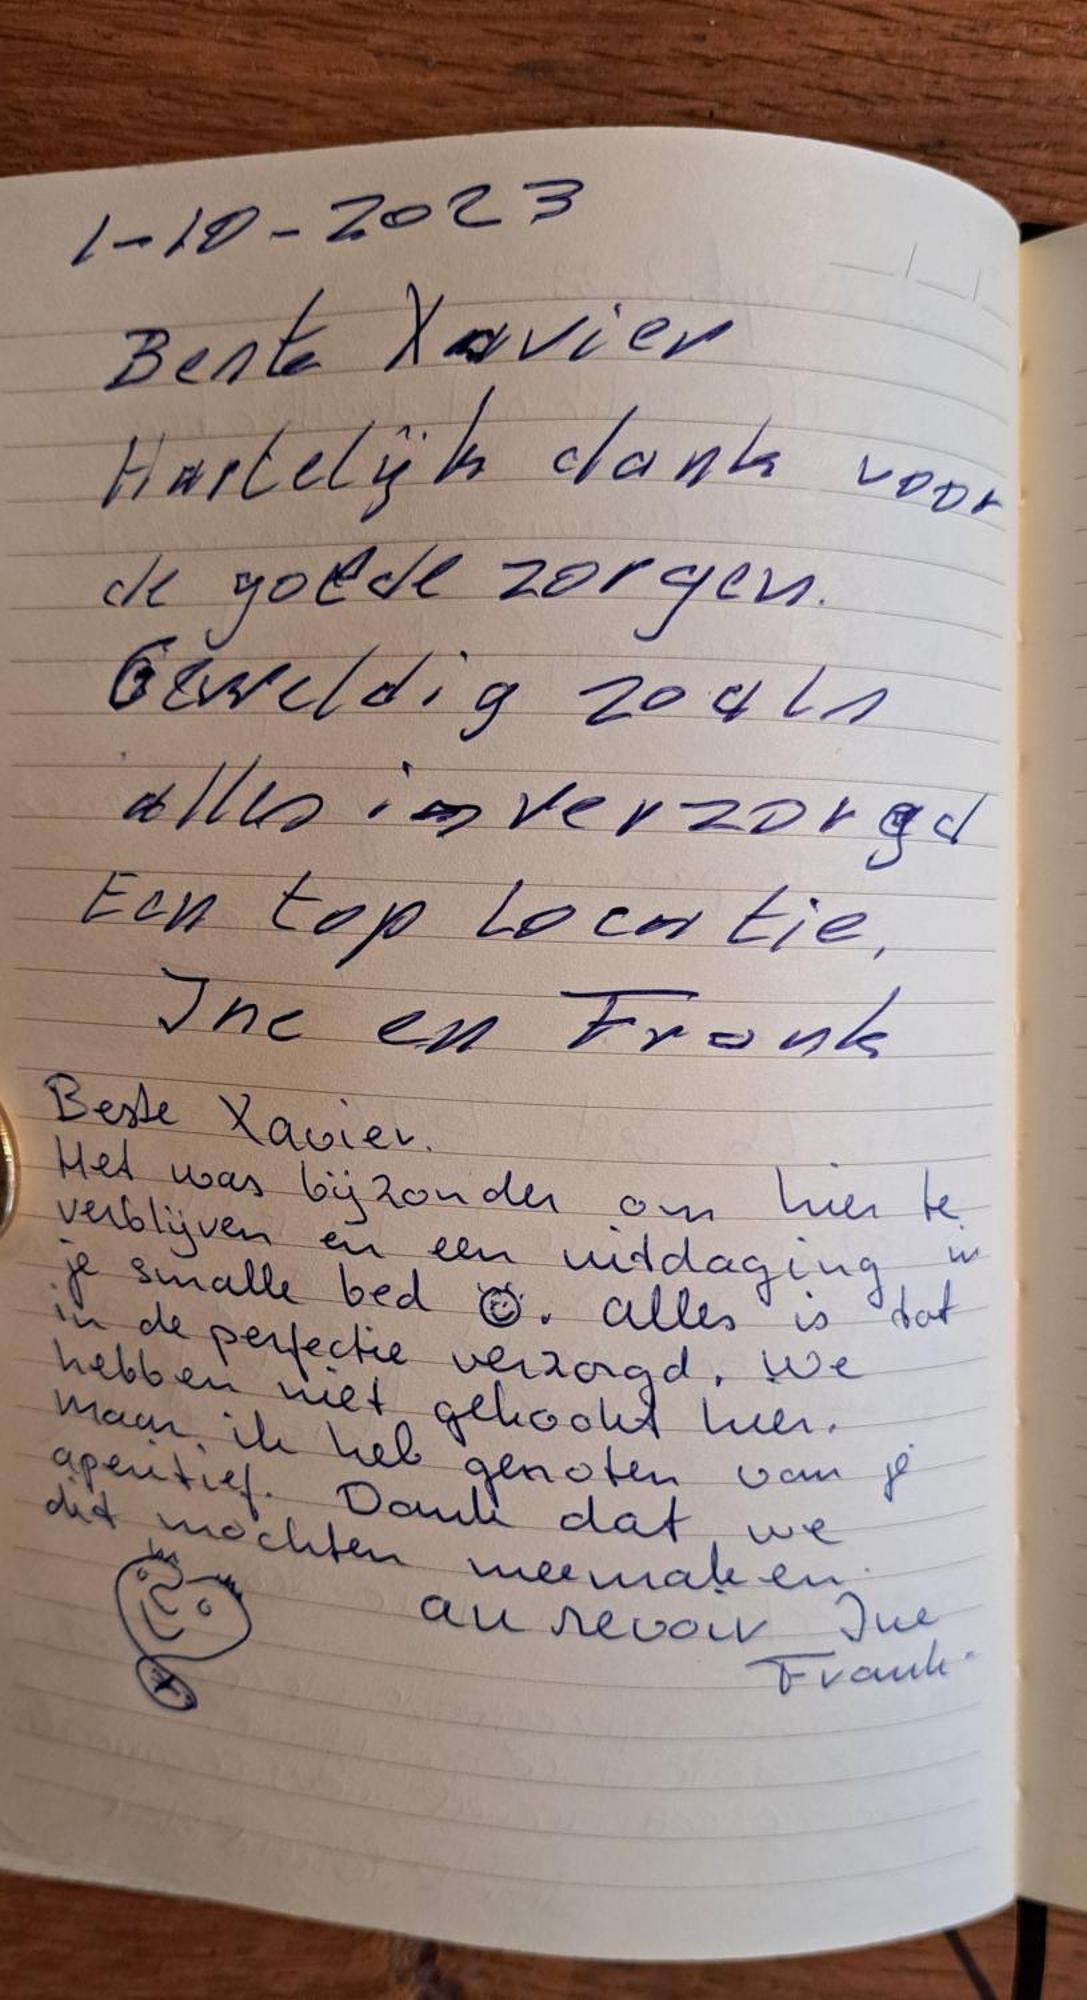 1-10-2023
Beste Xavier
Hartelijk dank voor
de goede zorgen.
Geweldig zoals
alles is verzorgd
Een top locatie,
Ine en Frank
Beste Xavier.
Het was bijzonder om hier te
verblijven en een uitdaging in
je smalle bed ☺. Alles is tot
in de perfectie verzorgd. We
hebben niet gekookt hier.
maar ik heb genoten van je
aperitief. Dank dat we
dit mochten meemaken.
au revoir Ine
Frank.